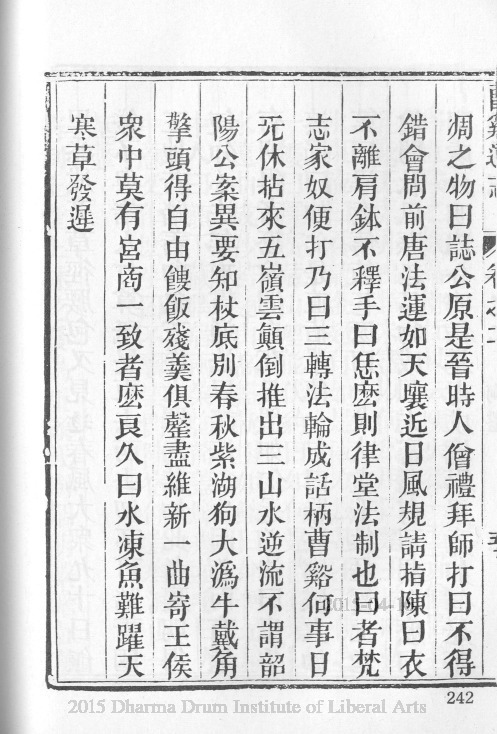 凋之物曰誌公原是晉時人僧禮拜師打曰不得
錯會問前唐法運如天壤近日風規請指陳曰衣
不離肩鉢不釋手曰恁麼則律堂法制也曰者梵
志家奴便打乃曰三轉法輪成話柄曹谿何事日
旡休拈來五嶺雲顛倒推出三山水逆流不謂韶
陽公案異要知杖底別春秋紫湖狗大溈牛戴角
擎頭得自由餿飯殘羹俱罄盡維新一曲寄王侯
衆中莫有宮商一致者麼良久曰水凍魚難躍天
寒草發遲
242
2015 Dharma Drum Institute of Liberal Arts